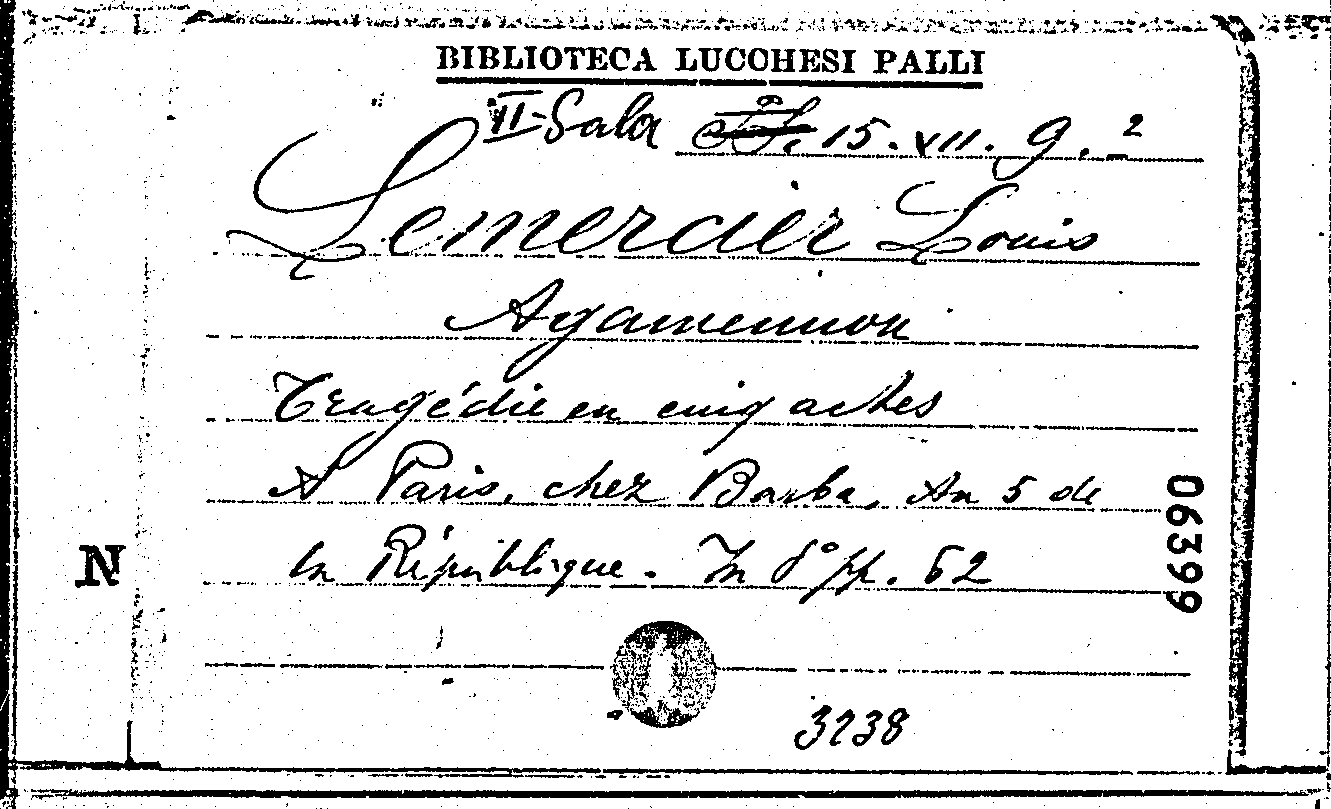 BIBLIOTECA LUCCHESI PALLI
II-Sala 15. XII. 9. 2
Lemercier Louis
Agamennon
Tragédie en cinq actes
A Paris, chez Barba, An 5 de
la République. In 8° pp. 62
N
06399
3238